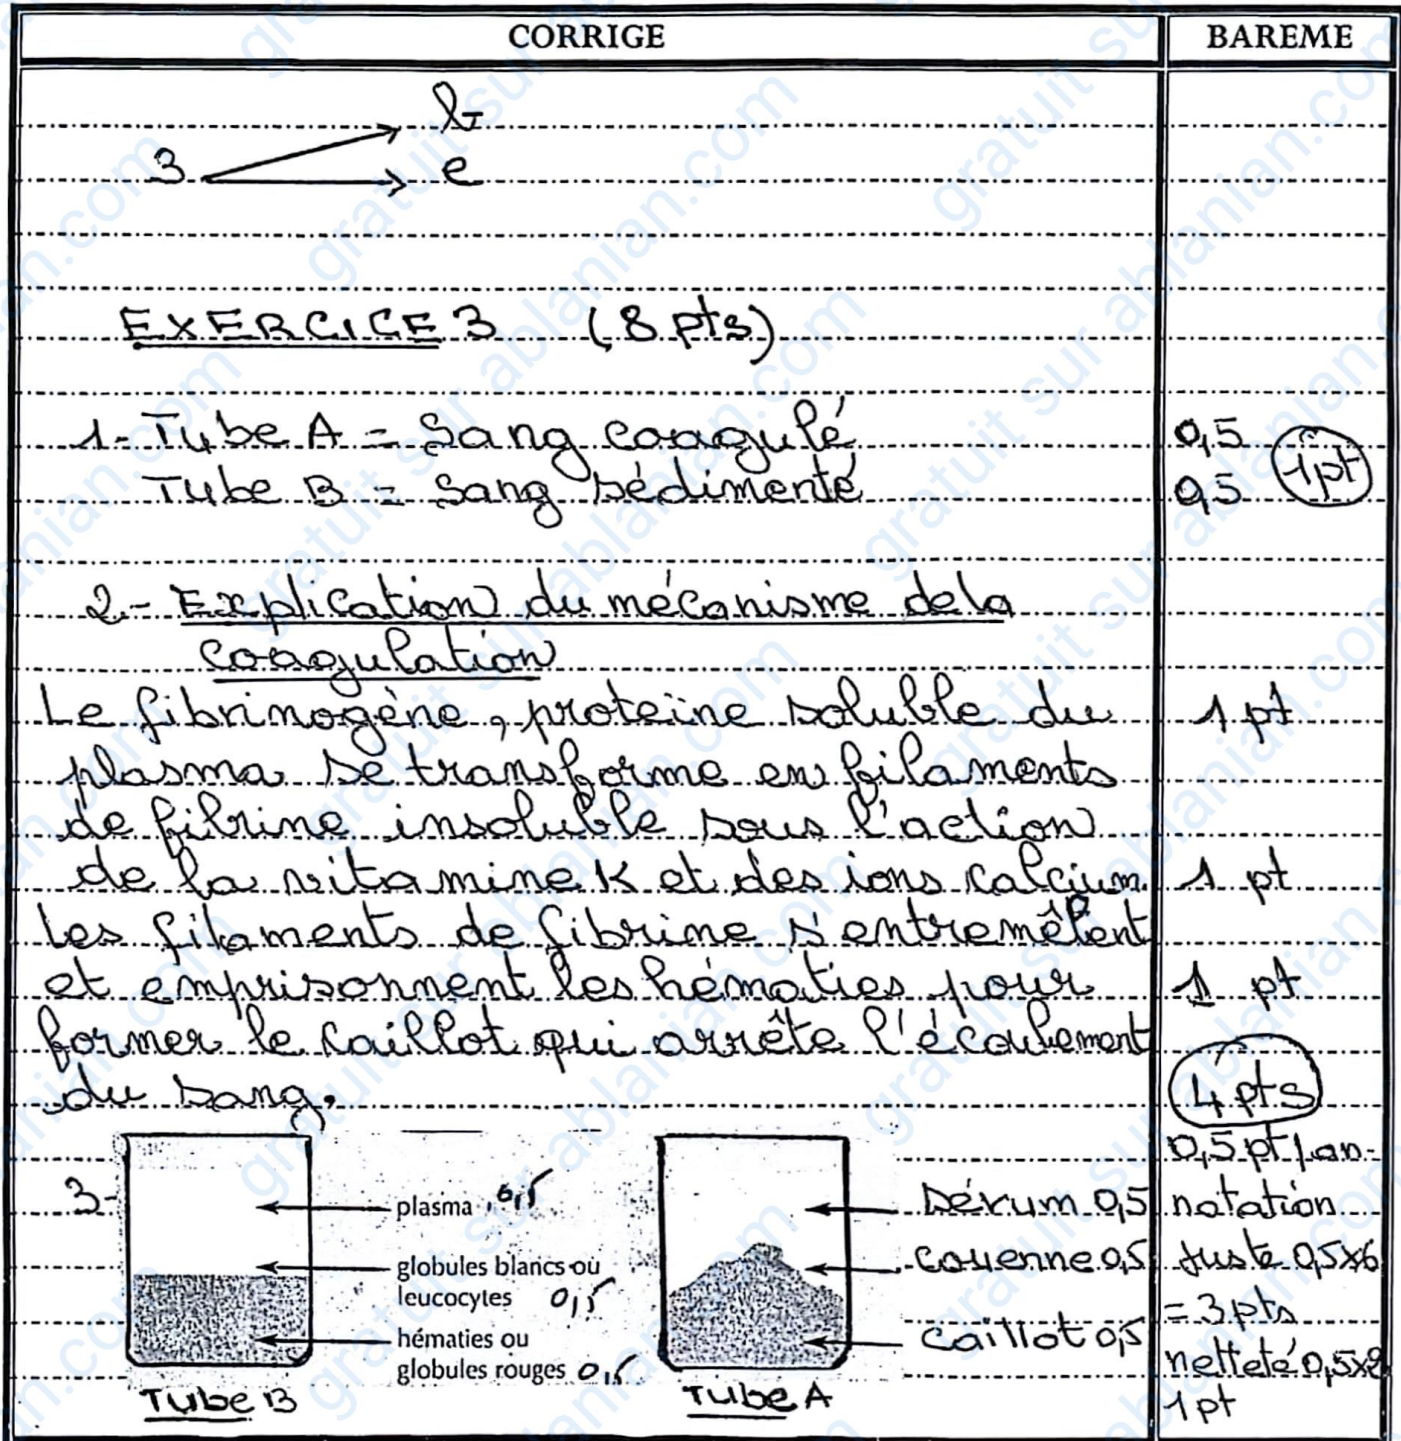 CORRIGE
BAREME
3 b
e
EXERCICE 3 (8 pts)
1- Tube A = Sang coagulé 0,5
Tube B = Sang sédimenté 0,5 1pt
2- Explication du mécanisme de la
coagulation
Le fibrinogène, proteïne soluble du 1 pt
plasma se transforme en filaments
de fibrine insoluble sous l'action
de la vitamine K et des ions calcium. 1 pt
Les filaments de fibrine s'entremêlent
et emprisonnent les hématies pour 1 pt
former le caillot qui arrête l'écoulement
du sang.
4 pts
3-
plasma 0,5
globules blancs ou
leucocytes 0,5
hématies ou
globules rouges 0,5
Tube B
Sérum 0,5
couenne 0,5
caillot 0,5
Tube A
0,5 pt / an-
notation
juste 0,5x6
= 3 pts
netteté 0,5x2
1 pt
gratuit sur ablanian.com